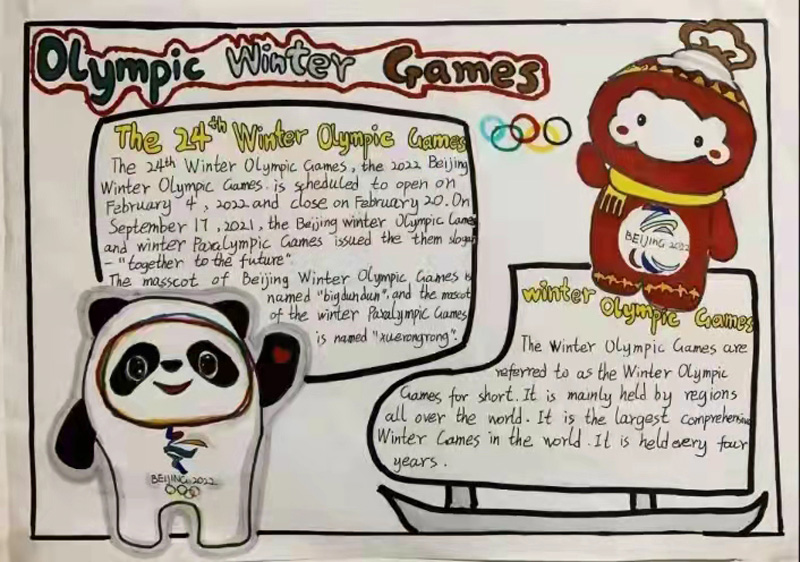 Olympic Winter Games
The 24th Winter Olympic Games
The 24th Winter Olympic Games, the 2022 Beijing
Winter Olympic Games. is scheduled to open on
February 4, 2022 and close on February 20. On
September 17, 2021, the Beijing winter Olympic Games
and winter Paralympic Games issued the them slogan
- "together to the future"
The masscot of Beijing Winter Olympic Games is
named "bigdundun", and the mascot
of the winter Paralympic Games
is named "xuerongrong".
BEIJING 2022
BEIJING 2022
winter Olympic Games
The Winter Olympic Games are
referred to as the Winter Olympic
Games for short. It is mainly held by regions
all over the world. It is the largest comprehensive
Winter Games in the world. It is held every four
years.